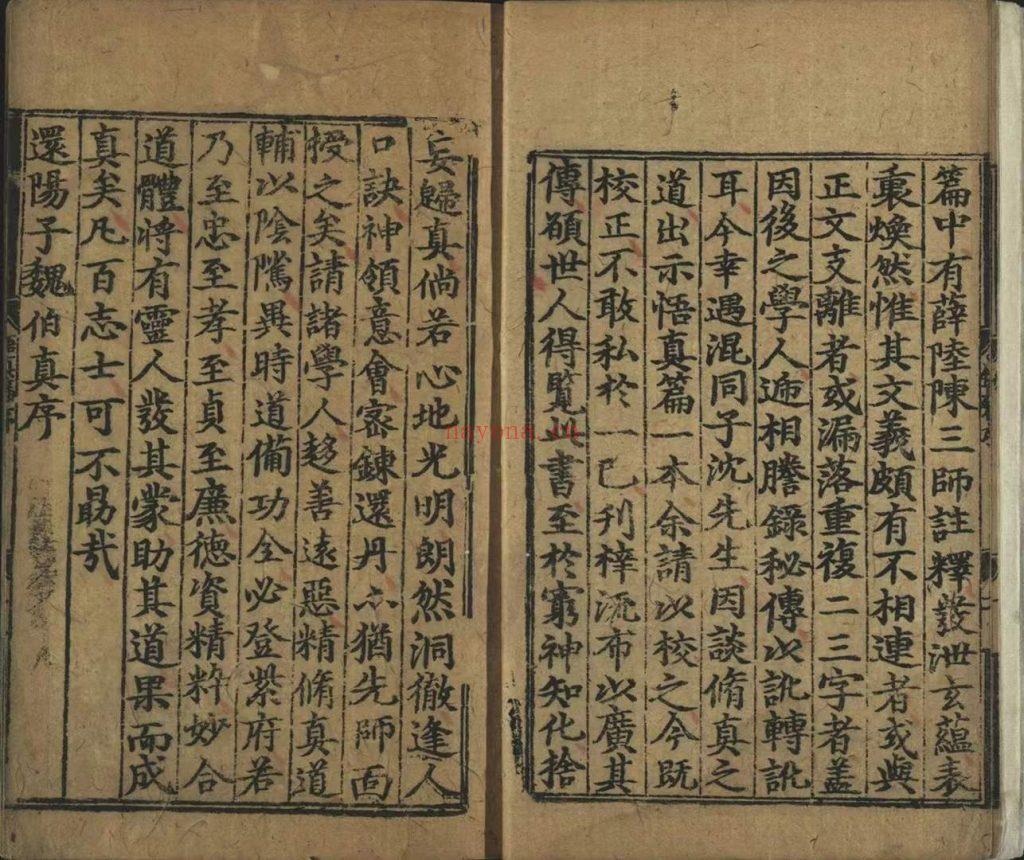 篇中有薛陸陳三師註釋發泄玄蘊表
裏煥然惟其文義頗有不相連者或與
正文支離者或漏落重複二三字者盖
因後之學人遞相謄錄秘傳以訛轉訛
耳今幸遇混同子沈先生因談脩真之
道出示悟真篇一本余請以校之今既
校正不敢私於一己刋梓流布以廣其
傳碩世人得覽此書至於窮神知化捨
妄歸真倘若心地光明朗然洞徹逢人
口訣神領意會宻鍊還丹亦猶先師面
授之矣請諸學人趍善遠惡精脩真道
輔以陰隲異時道備功全必登紫府若
乃至忠至孝至貞至廉德資精粹妙合
道體將有靈人發其蒙助其道果而成
真矣凡百志士可不勗哉
還陽子魏伯真序